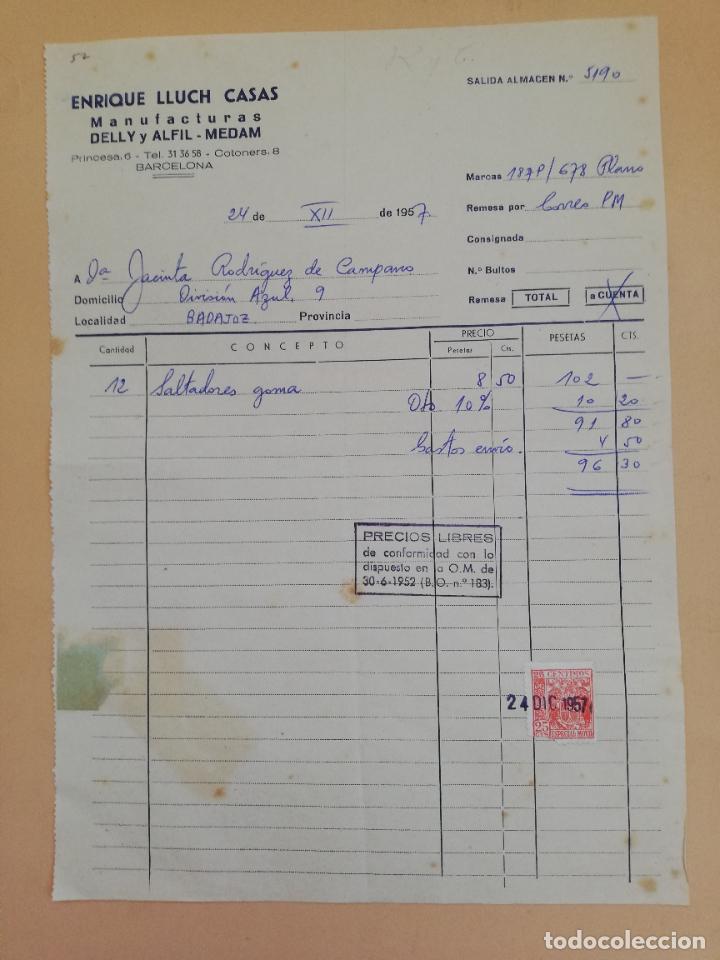 52
ENRIQUE LLUCH CASAS
Manufacturas
DELLY y ALFIL - MEDAM
Princesa, 6 - Tel. 31 36 58 - Cotoners, 8
BARCELONA
SALIDA ALMACEN N.º 5190
Marcas 187P/678 Plano
24 de XII de 1957.
Remesa por Correo PM
Consignada
A Dª Jacinta Rodríguez de Campano
N.º Bultos
Domicilio División Azul, 9
Remesa TOTAL a CUENTA
Localidad BADAJOZ. Provincia
Cantidad CONCEPTO PRECIO PESETAS CTS.
Pesetas Cts.
12 Saltadores goma 8 50 102 —
Dto 10% 10 20
91 80
Gastos envío. 4 50
96 30
PRECIOS LIBRES
de conformidad con lo
dispuesto en la O.M. de
30-6-1952 (B.O. n.º 183).
25 CENTIMOS
24 DIC 1957
25 CTS
ESPECIAL MOVIL
todocoleccion